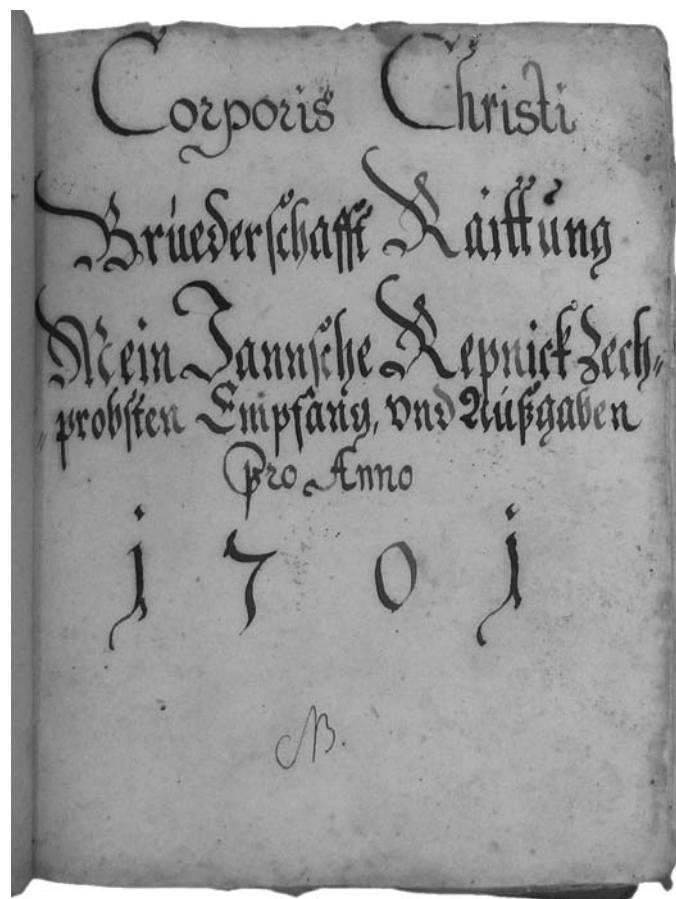 Corporis Christi
Brúederschafft Räittŭng
Mein Jannsche Repnick Zech„
„probsten Empfang, vnd Aŭßgaben
Pro Anno
1701
NB.